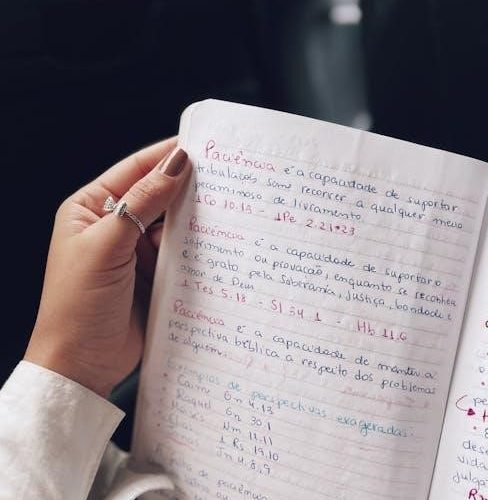 Paciência é a capacidade de suportar
tribulações sem recorrer a qualquer meio
pecaminoso de livramento.
1 Co 10.13 - 1Pe 2.21*23
Paciência é a capacidade de suportar o
sofrimento ou provação, enquanto se reconhece
e é grato pela soberania, justiça, bondade e
amor de Deus.
1 Tes 5.18 - Sl 34.1 - Hb 11.6
Paciência é a capacidade de manter a
perspectiva bíblica a respeito dos problemas
de alguém.
Exemplos de perspectivas exageradas:
• Caim Gn 4.13
Raquel Gn 30.1
Moisés Nm 11.11
1 Rs 19.10
Jn 4.8,9
A falta de paciência